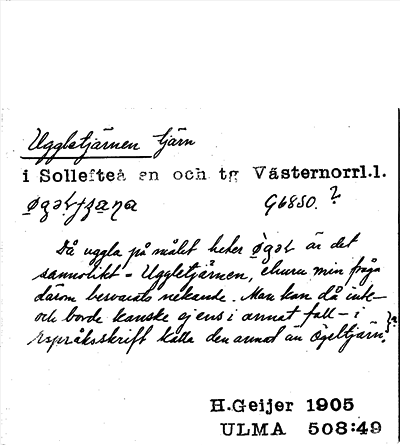 Uggletjärnen tjärn
i Sollefteå sn och tg Västernorrl.l.
G6850. ?
Då uggla på målet heter ògəl är det
sannolikt = Uggletjärnen, ehuru min fråga
därom besvarats nekande. Man kan då inte –
och borde kanske ej ens i annat fall – i
rspråksskrift kalla den annat än Ögeltjärn.
H.Geijer 1905
ULMA 508:49